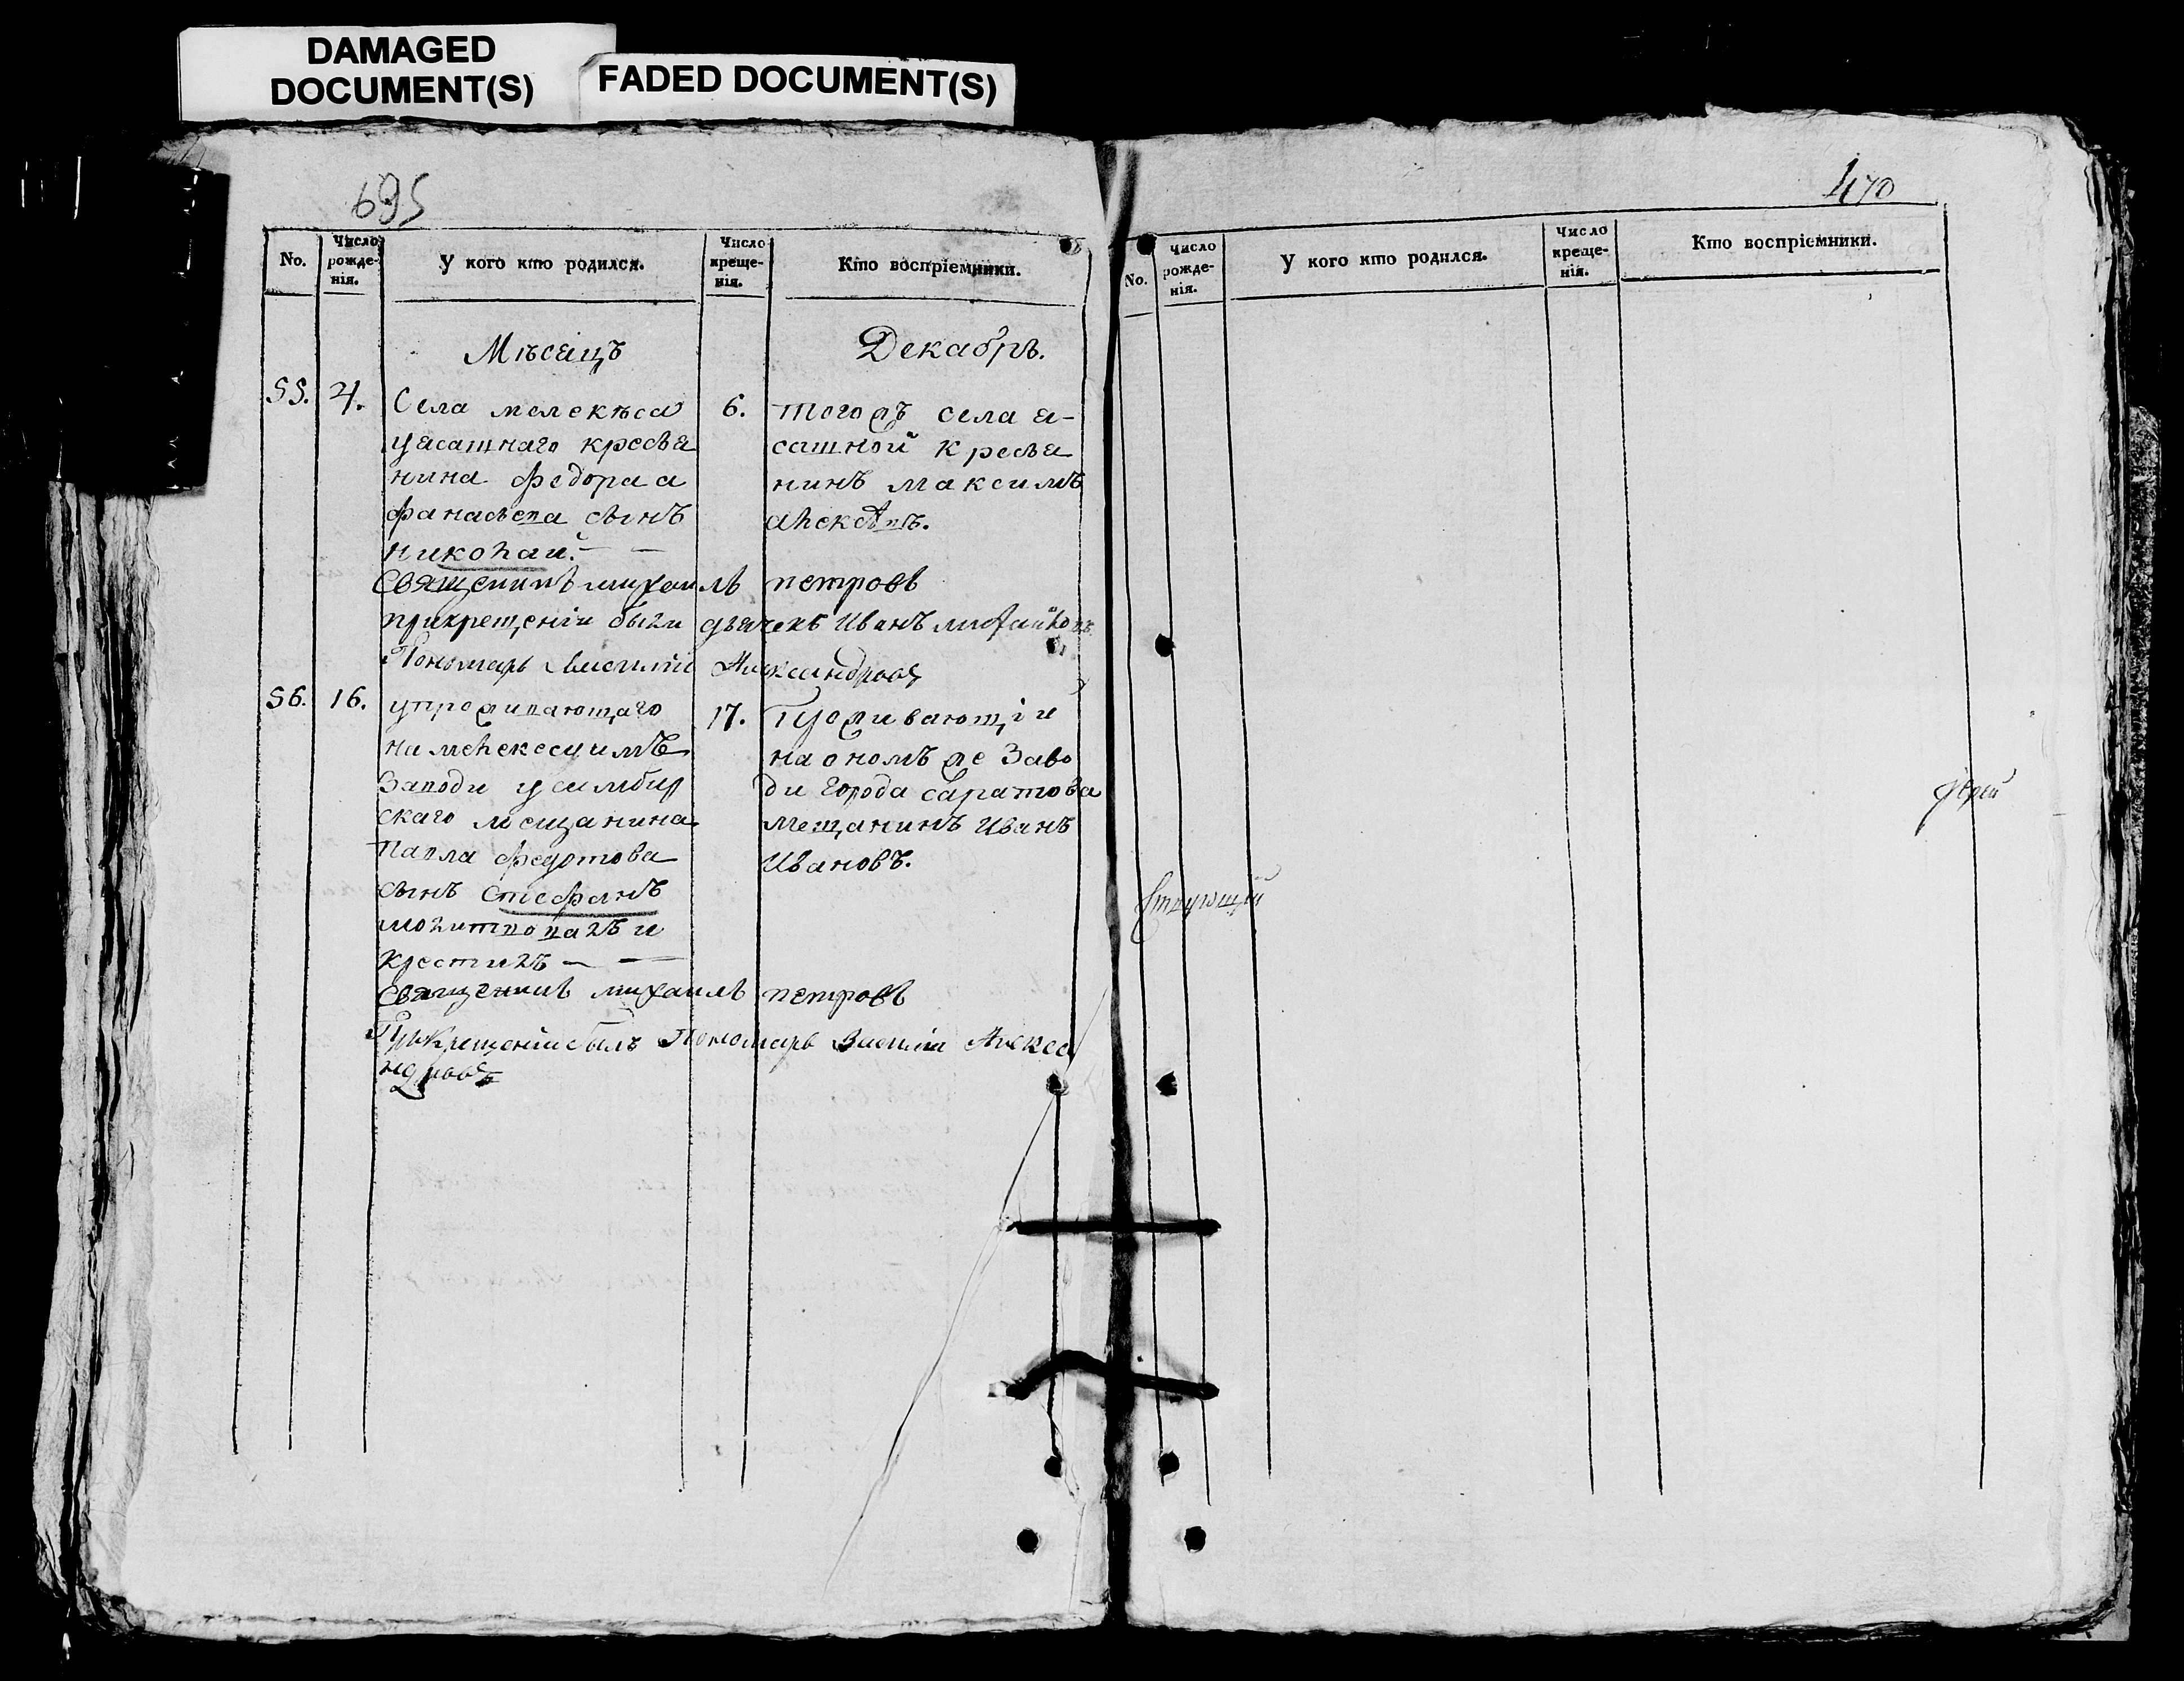 DAMAGED
DOCUMENT(S)
FADED DOCUMENT(S)
695
No.
Число рожде-нія.
У кого кто родился.
Число креще-нія.
Кто воспріемники.
Мѣсяцъ
Декабрь.
55.
4.
Села мелекѣса
уясашнаго крестья
нина Федора а
фанасьева сынъ
николай. — —
6.
тогожъ села я-
сашной крестья
нинъ максимъ
алексѣевъ.
Священникъ михаилъ петровъ
прикрещеніи были дьячекъ Иванъ михайловъ
Пономарь Василій Александровъ
56.
16.
упроживающаго
на мелекесцимъ
Заводи у симбир
скаго мещанина
павла федотова
сынъ Стефанъ
молитвовалъ и
крестилъ — —
17.
Проживающій
на ономъ же Заво
ди города саратова
мещанинъ Иванъ
Ивановъ.
Священникъ михаилъ петровъ
Прикрещеніи былъ Пономарь Василій Алекса
ндровъ
470
No.
Число рожде-нія.
У кого кто родился.
Число креще-нія.
Кто воспріемники.